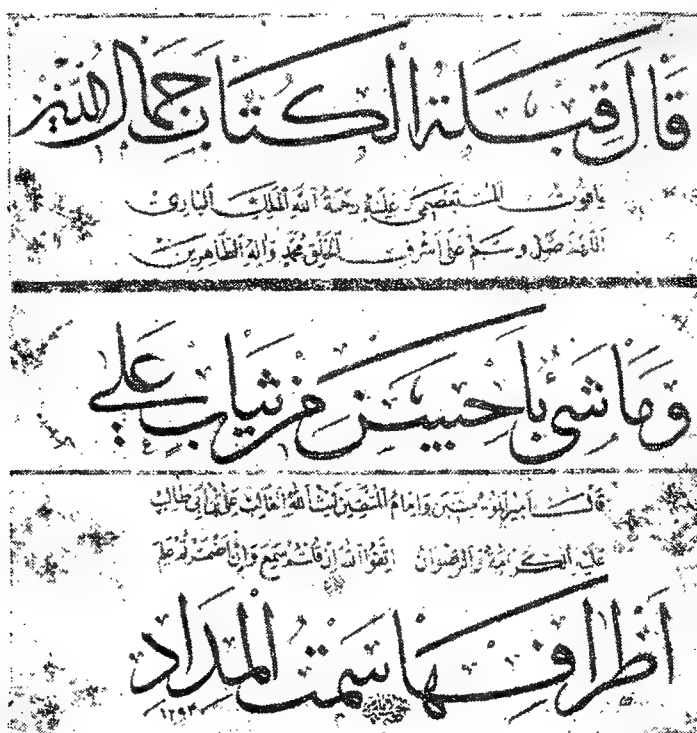 قال قبلة الكتاب جمال الدين
ياقوت المستعصمي عليه رحمة الله الملك الباري
اللهم صل وسلم على أشرف الخلق محمد وآله الطاهرين
وما شيء بأحسن من ثياب على
قال أمير المؤمنين وإمام المتقين ليث الله الغالب علي بن أبي طالب
عليه الكرامة والرضوان اتقوا الله إن قلتم سمع وإن أضمرتم علم
أطرافها سمت المداد
١٢٩٣